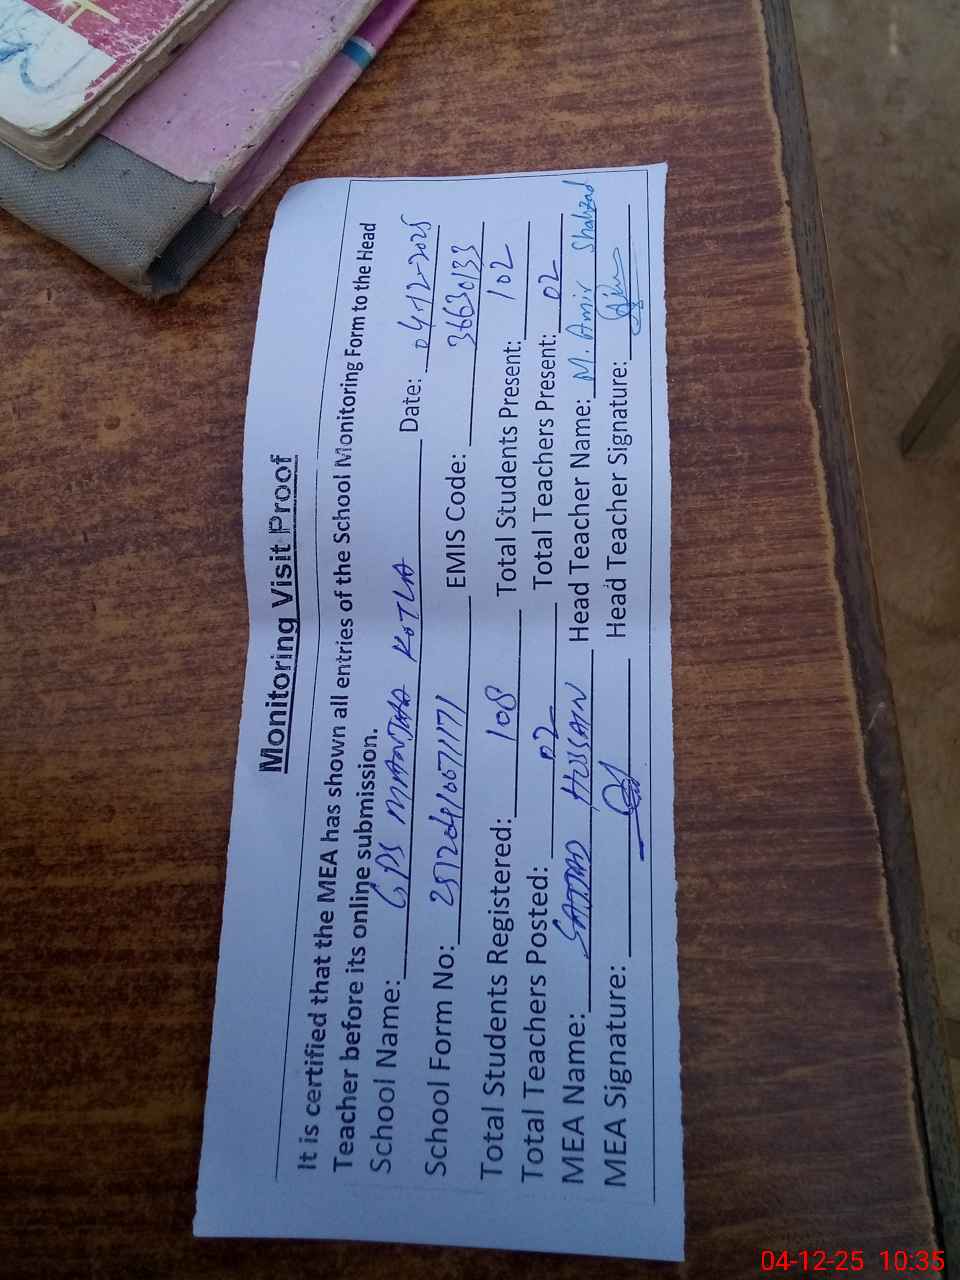 Monitoring Visit Proof
It is certified that the MEA has shown all entries of the School Monitoring Form to the Head
Teacher before its online submission.
School Name: GPS MIANJHA KOTLA Date: 04-12-2025
School Form No: EMIS Code: 36630133
Total Students Registered: 108 Total Students Present: 102
Total Teachers Posted: 02 Total Teachers Present: 02
MEA Name: SAJJAD HUSSAIN Head Teacher Name: M. Amir Shahzad
MEA Signature: Head Teacher Signature:
04-12-25 10:35